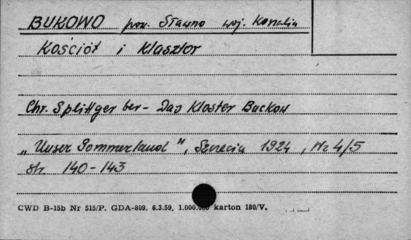 BUKOWO pow. Sławno woj. Koszalin
Kościół i Klasztor
Chr. Splittgerber - Das Kloster Buckow
„Unser Pommerland", Szczecin 1924, Nr 4/5
str. 140-143
CWD B-15b Nr 515/P. GDA-809. 6.3.59, 1.000.000 karton 180/V.